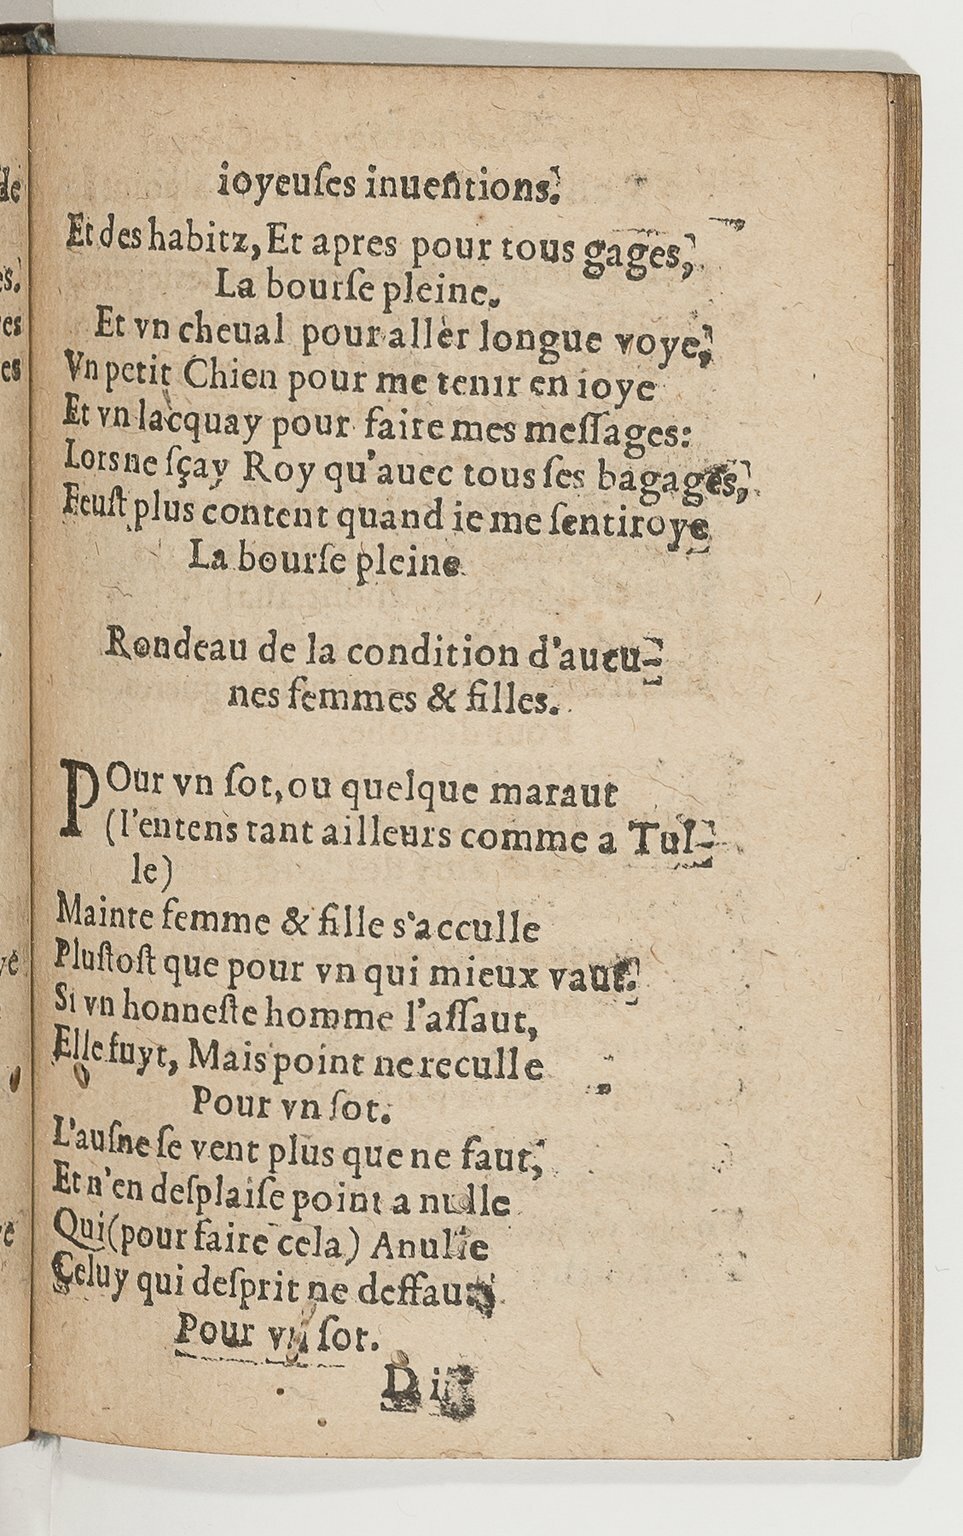 ioyeuſes inuentions.
Et des habitz, Et apres pour tous gages,
La bourſe pleine.
Et vn cheual pour aller longue voye,
Vn petit Chien pour me tenir en ioye
Et vn lacquay pour faire mes meſſages:
Lors ne ſçay Roy qu'auec tous ſes bagages,
Feuſt plus content quand ie me ſentiroye
La bourſe pleine
Rondeau de la condition d'aucu-
nes femmes & filles.
POur vn ſot, ou quelque maraut
(I'entens tant ailleurs comme a Tul-
le)
Mainte femme & fille s'acculle
Pluſtoſt que pour vn qui mieux vaut.
Si vn honneſte homme l'aſſaut,
Elle fuyt, Mais point ne reculle
Pour vn ſot.
L'auſne ſe vent plus que ne faut,
Et n'en deſplaiſe point a nulle
Qui (pour faire cela) Anulle
Celuy qui deſprit ne deffaut
Pour vn ſot.